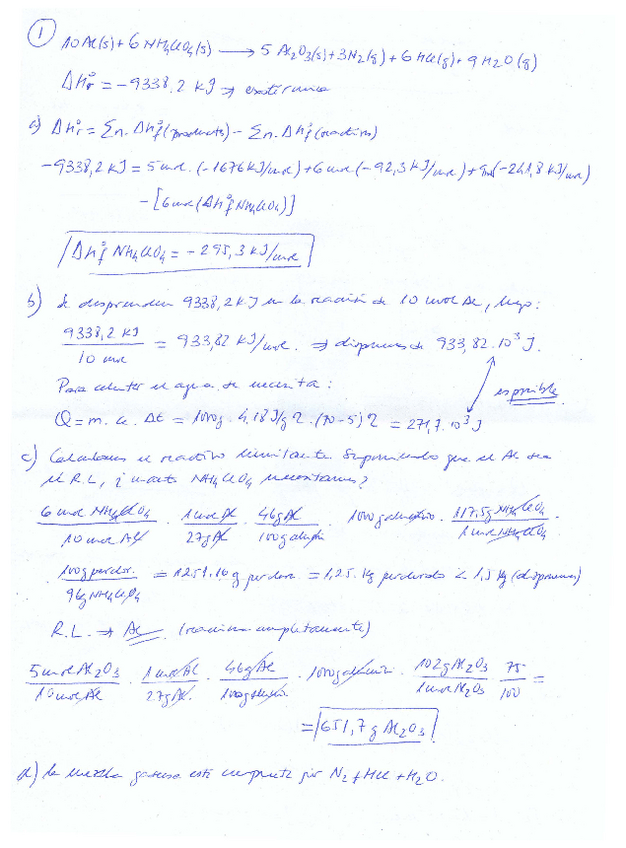 1
10Al(s) + 6 NH₄ClO₄(s) ⟶ 5 Al₂O₃(s) + 3N₂(g) + 6 HCl(g) + 9 H₂O(g)
ΔHr° = -9338,2 kJ ⇒ exotérmica
a) ΔHr° = Σn. ΔHf°(products) - Σn. ΔHf°(reactivos)
-9338,2 kJ = 5 mol. (-1676 kJ/mol) + 6 mol (-92,3 kJ/mol) + 9 mol (-241,8 kJ/mol)
- [6 mol (ΔHf° NH₄ClO₄)]
ΔHf° NH₄ClO₄ = -295,3 kJ/mol
b) Se desprenden 9338,2 kJ en la reacción de 10 mol Al, luego:
9338,2 kJ / 10 mol = 933,82 kJ/mol. ⇒ disponemos de 933,82·10³ J.
Para calentar el agua se necesita:
es posible
Q = m. ce. Δt = 1000g. 4,18 J/g ℃. (70-5) ℃ = 271,7·10³ J
c) Calculamos el reactivo limitante. Suponiendo que el Al sea
el R.L., ¿cuánto NH₄ClO₄ necesitamos?
6 mol NH₄ClO₄ / 10 mol Al · 1 mol Al / 27g Al · 46g Al / 100g aluminio · 1000g aluminio · 117,5g NH₄ClO₄ / 1 mol NH₄ClO₄ ·
· 100g perclor. / 96g NH₄ClO₄ = 1251,16 g perclor. = 1,25 Kg perclorato < 1,5 Kg (disponemos)
R.L. ⇒ Al (reacciona completamente)
5 mol Al₂O₃ / 10 mol Al · 1 mol Al / 27g Al · 46g Al / 100g aluminio · 1000g aluminio · 102g Al₂O₃ / 1 mol Al₂O₃ · 75 / 100 =
= 651,7 g Al₂O₃
d) La mezcla gaseosa está compuesta por N₂ + HCl + H₂O.